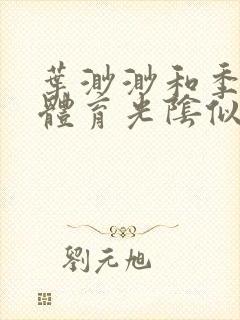 葉渺渺和季
體育光陰似
劉元旭